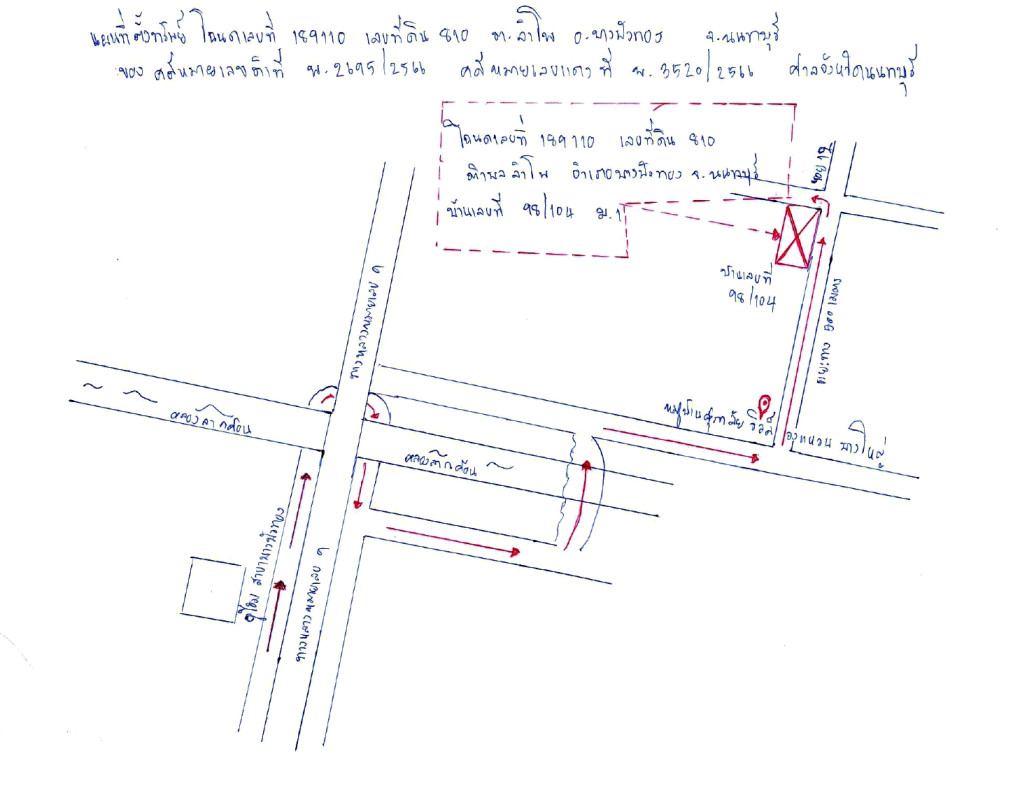 แผนที่ตั้งทรัพย์ โฉนดเลขที่ 189110 เลขที่ดิน 810 ต.ลำโพ อ.บางบัวทอง จ.นนทบุรี
ของ คดีหมายเลขดำที่ พ.2695/2566 คดีหมายเลขแดงที่ พ.3520/2566 ศาลจังหวัดนนทบุรี
โฉนดเลขที่ 189110 เลขที่ดิน 810
ตำบลลำโพ อำเภอบางบัวทอง จ.นนทบุรี
บ้านเลขที่ 98/104 ม.1
บ้านเลขที่
98/104
ทางหลวงหมายเลข 6
หมู่บ้าน
วงแหวน บางใหญ่
คลองลากค้อน
คลองลากค้อน
สาขาบางบัวทอง
ทางหลวงหมายเลข 6